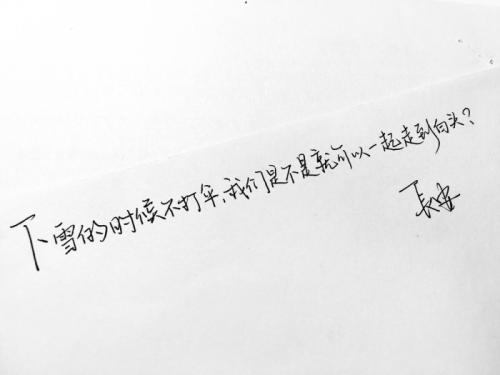 下雪的时候不打伞，我们是不是就可以一起走到白头？
長安